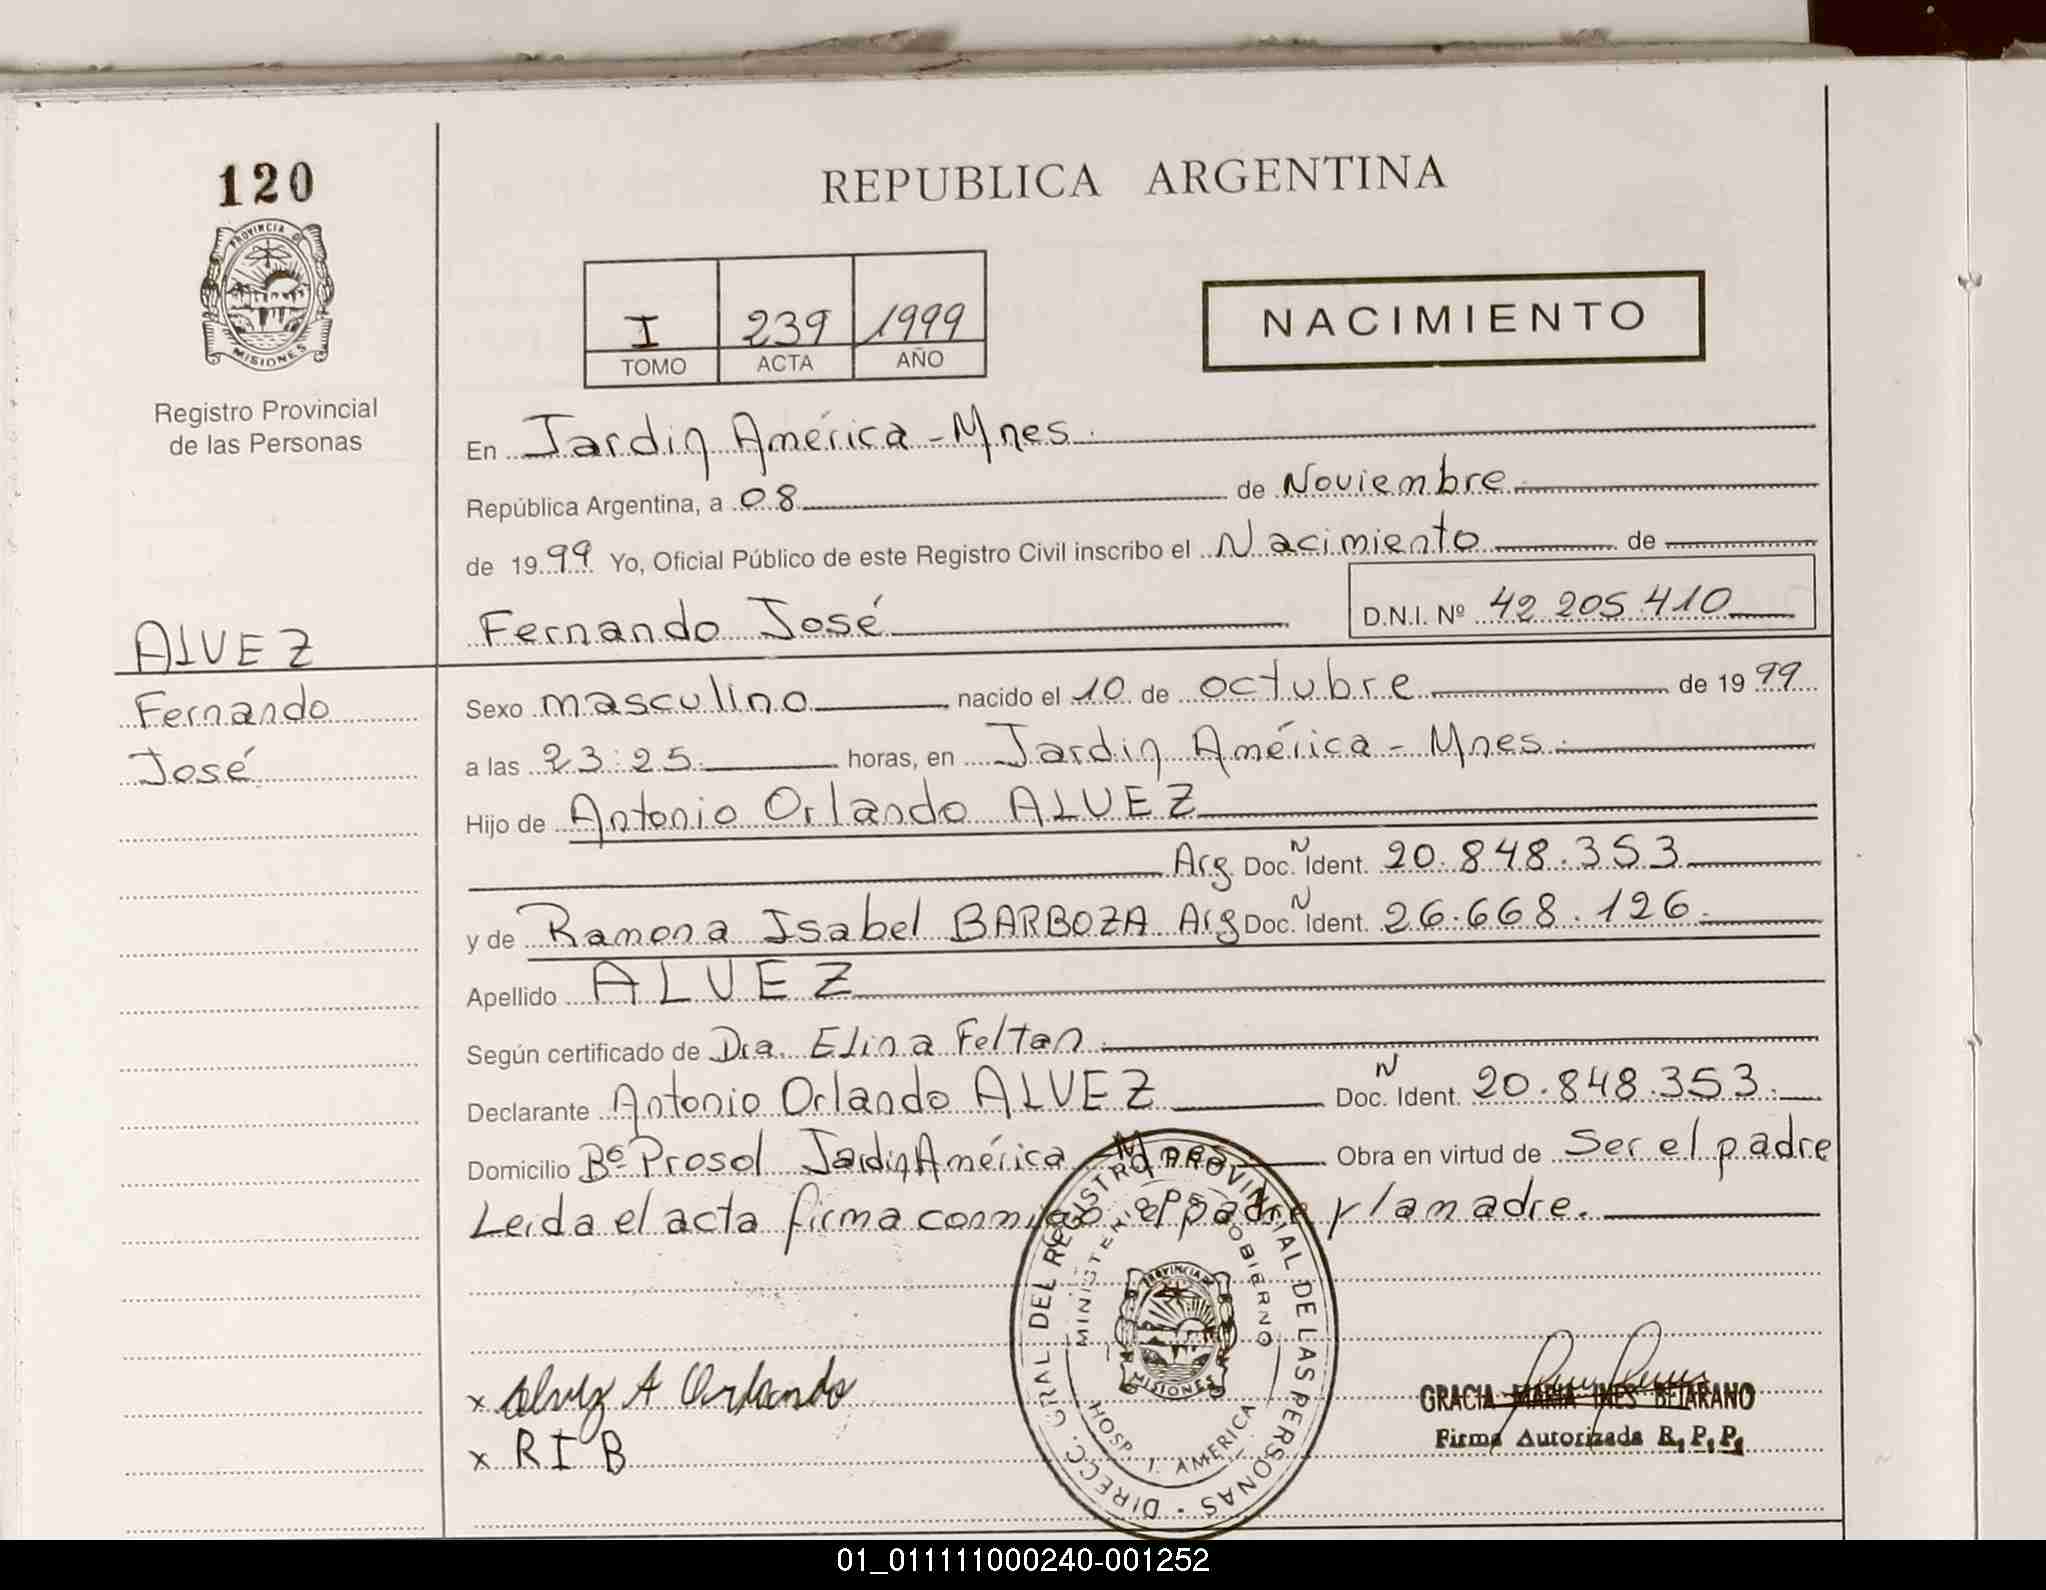 120
PROVINCIA DE
MISIONES
Registro Provincial
de las Personas
ALVEZ
Fernando
José
REPUBLICA ARGENTINA
I 239 1999
TOMO ACTA AÑO
NACIMIENTO
En Jardin América - Mnes.
República Argentina, a 08 de Noviembre
de 1999 Yo, Oficial Público de este Registro Civil inscribo el Nacimiento de
Fernando José D.N.I. Nº 42 205.410
Sexo masculino nacido el 10 de octubre de 1999
a las 23:25 horas, en Jardin América - Mnes.
Hijo de Antonio Orlando ALVEZ
Arg. Doc. N Ident. 20.848.353
y de Ramona Isabel BARBOZA Arg Doc. N Ident. 26.668.126.
Apellido ALVEZ
Según certificado de Dra. Elina Feltan.
Declarante Antonio Orlando ALVEZ Doc. N Ident. 20.848.353.
Domicilio Bº Prosol Jardin América - Mnes Obra en virtud de Ser el padre
Leida el acta firma conmigo el padre y la madre.
DIRECC. GRAL DEL REGISTRO PROVINCIAL DE LAS PERSONAS
MINISTERIO DE GOBIERNO
PROVINCIA DE
MISIONES
HOSP. J. AMERICA
x Alvez A Orlando
x R I B
GRACIA MARIA INES BEJARANO
Firma Autorizada R.P.P.
01_011111000240-001252